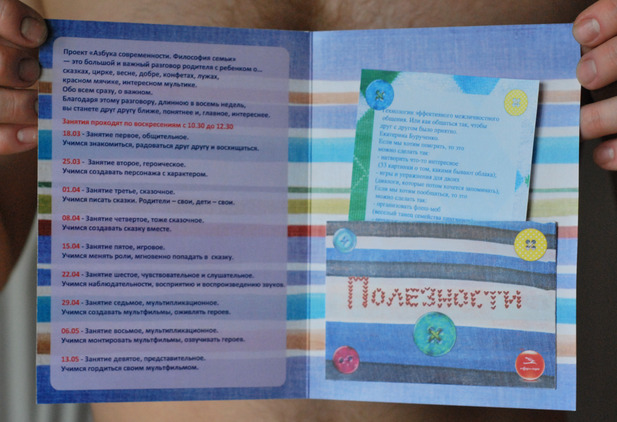 Проект «Азбука современности. Философия семьи»
— это большой и важный разговор родителя с ребенком о...
сказках, цирке, весне, добре, конфетах, лужах,
красном мячике, интересном мультике.
Обо всем сразу, о важном.
Благодаря этому разговору, длинною в восемь недель,
вы станете друг другу ближе, понятнее и, главное, интереснее.
Занятия проходят по воскресениям с 10.30 до 12.30
18.03 - Занятие первое, общительное.
Учимся знакомиться, радоваться друг другу и восхищаться.
25.03 - Занятие второе, героическое.
Учимся создавать персонажа с характером.
01.04 - Занятие третье, сказочное.
Учимся писать сказки. Родители – свои, дети – свои.
08.04 - Занятие четвертое, тоже сказочное.
Учимся создавать сказку вместе.
15.04 - Занятие пятое, игровое.
Учимся менять роли, мгновенно попадать в сказку.
22.04 - Занятие шестое, чувствовательное и слушательное.
Учимся наблюдательности, восприятию и воспроизведению звуков.
29.04 - Занятие седьмое, мультипликационное.
Учимся создавать мультфильмы, оживлять героев.
06.05 - Занятие восьмое, мультипликационное.
Учимся монтировать мультфильмы, озвучивать героев.
13.05 - Занятие девятое, представительное.
Учимся гордиться своим мультфильмом.
Технология эффективного межличностного
общения. Или как общаться так, чтобы
друг с другом было приятно.
Екатерина Бурученко.
Если мы хотим поверить, то это
можно сделать так:
- натворить что-то интересное
(53 картинки о том, какими бывают облака),
- игры и упражнения для двоих
(диалоги, которые потом хочется запомнить).
Если мы хотим пообщаться, то это
можно сделать:
- организовать фото-моб
Полезности